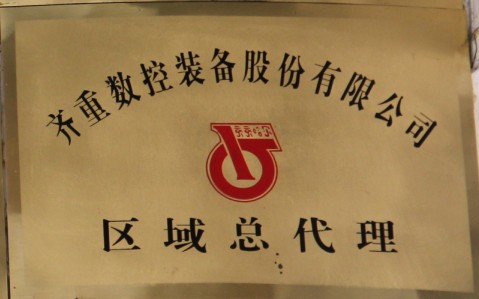 齐重数控装备股份有限公司
齐齐哈尔
区域总代理